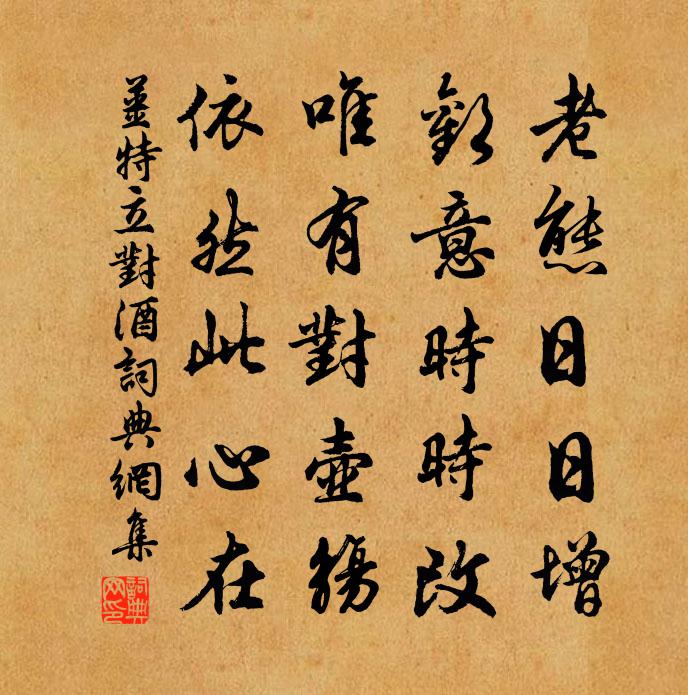 老態日日增
歡意時時改
唯有對壺觴
依然此心在
薑特立對酒詞典網集
詞典网印